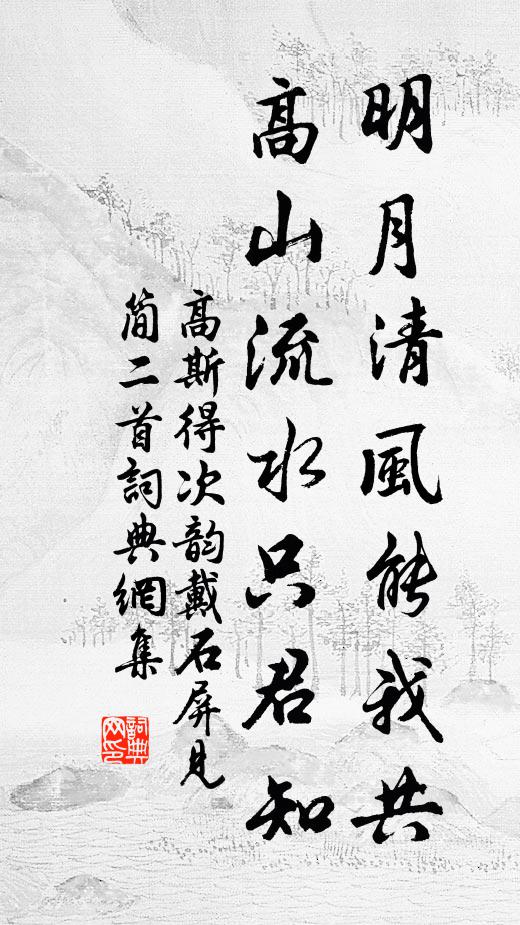 明月清風能我共
高山流水只君知
高斯得次韵戴石屏見
簡二首詞典網集
詞典網印